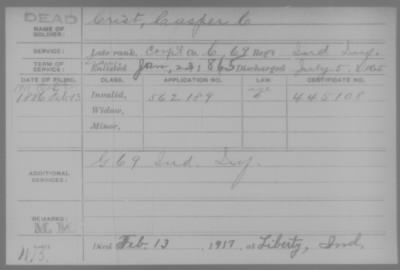 DEAD
NAME OF SOLDIER:
Crist, Casper C
SERVICE:
Late rank, Corpl Co. C, 69 Reg't Ind Inf.
TERM OF SERVICE:
Enlisted Jan, 1865 Discharged July 5, 1865
DATE OF FILING. CLASS. APPLICATION NO. LAW. CERTIFICATE NO.
1886 Feb 13 Invalid, 562189 445108
Widow,
Minor,
ADDITIONAL SERVICES:
G 69 Ind. Inf.
REMARKS:
Died Feb. 13, 1917, at Liberty, Ind.